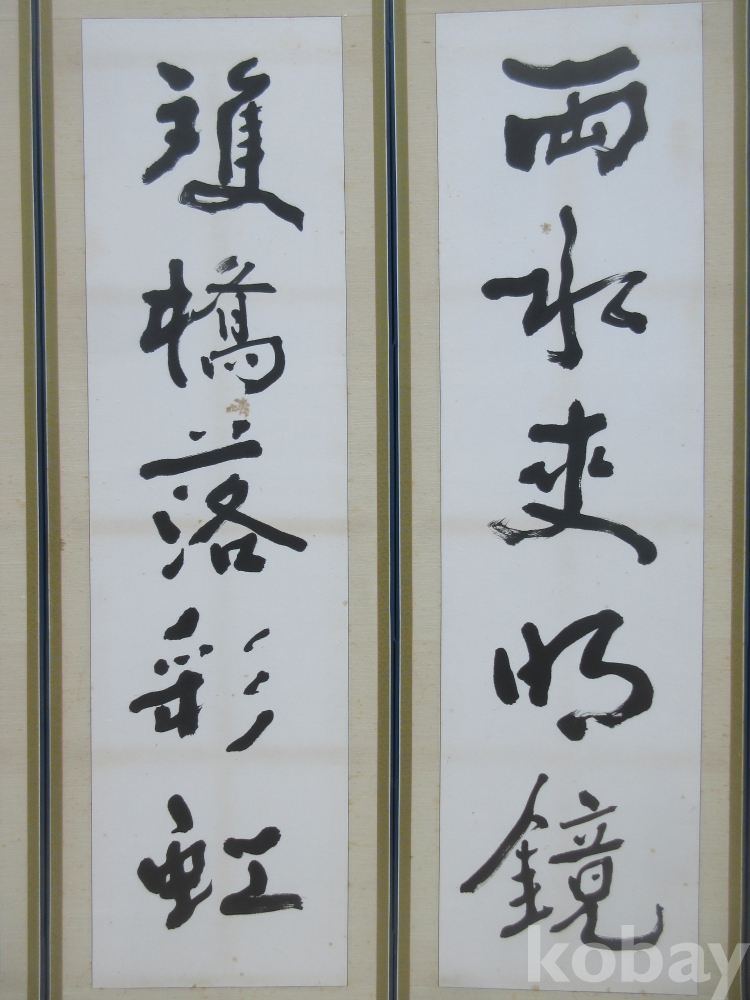 兩水夾明鏡
雙橋落彩虹
kobay